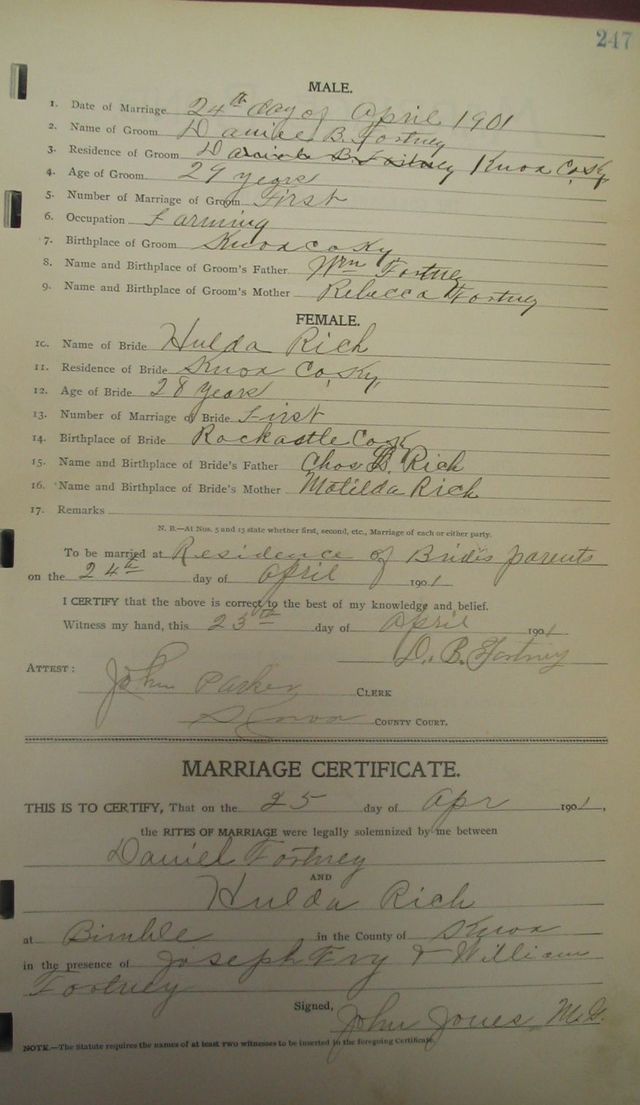 247
MALE.
1. Date of Marriage 24th day of April 1901
2. Name of Groom Daniel B. Fortney
3. Residence of Groom Daniel B. Fortney Knox Co, Ky
4. Age of Groom 29 years
5. Number of Marriage of Groom First
6. Occupation Farming
7. Birthplace of Groom Knox Co Ky
8. Name and Birthplace of Groom's Father Wm Fortney
9. Name and Birthplace of Groom's Mother Rebecca Fortney
FEMALE.
10. Name of Bride Hulda Rich
11. Residence of Bride Knox Co, Ky,
12. Age of Bride 28 years
13. Number of Marriage of Bride First
14. Birthplace of Bride Rockastle Co
15. Name and Birthplace of Bride's Father Chas B. Rich
16. Name and Birthplace of Bride's Mother Matilda Rich
17. Remarks
N. B.—At Nos. 5 and 13 state whether first, second, etc., Marriage of each or either party.
To be married at Residence of Brid's parents
on the 24th day of April 1901
I CERTIFY that the above is correct to the best of my knowledge and belief.
Witness my hand, this 23th day of April 1901
D. B. Fortney
ATTEST: John Parker CLERK
Knox COUNTY COURT.
MARRIAGE CERTIFICATE.
THIS IS TO CERTIFY, That on the 25 day of Apr 1901,
the RITES OF MARRIAGE were legally solemnized by me between
Daniel Fortney
AND
Hulda Rich
at Bimble in the County of Knox
in the presence of Joseph Fry & William
Fortney
Signed, John Jones M.G.
NOTE.—The Statute requires the names of at least two witnesses to be inserted in the foregoing Certificate.